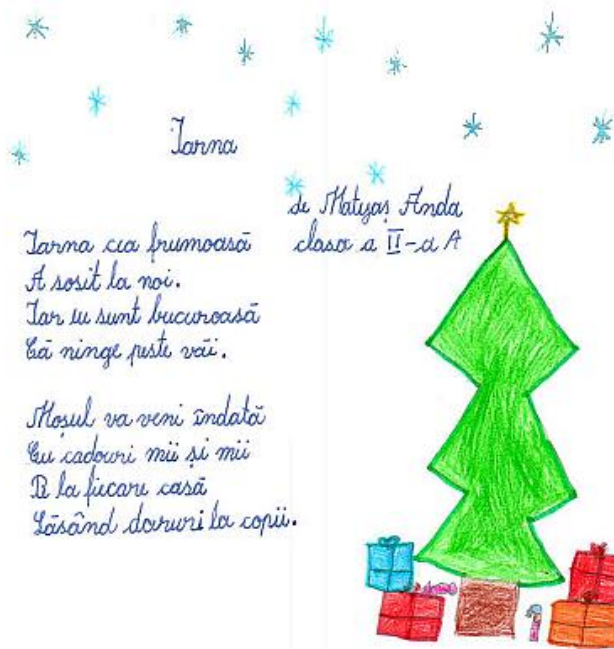 Iarna
de Matyaș Anda
clasa a II-a A
Iarna cea frumoasă
A sosit la noi.
Iar eu sunt bucuroasă
Că ninge peste văi.
Moșul va veni îndată
Cu cadouri mii și mii
De la fiecare casă
Lăsând daruri la copii.